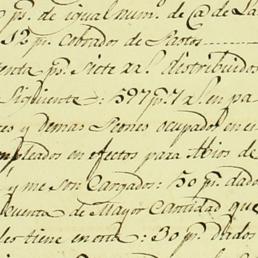 ps. de igual num. de @ de La
12 p. Cobrador de Pastos
enta ps. siete xal. distribuidos
Siguiente: 597 ps. 7 xl en pa
es y demas Peones ocupados en es
mpleados en efectos para Abios de
y me son Cargados: 50 ps. dado
cuenta de Mayor Cantidad que
les tiene en esta: 30 ps. dados